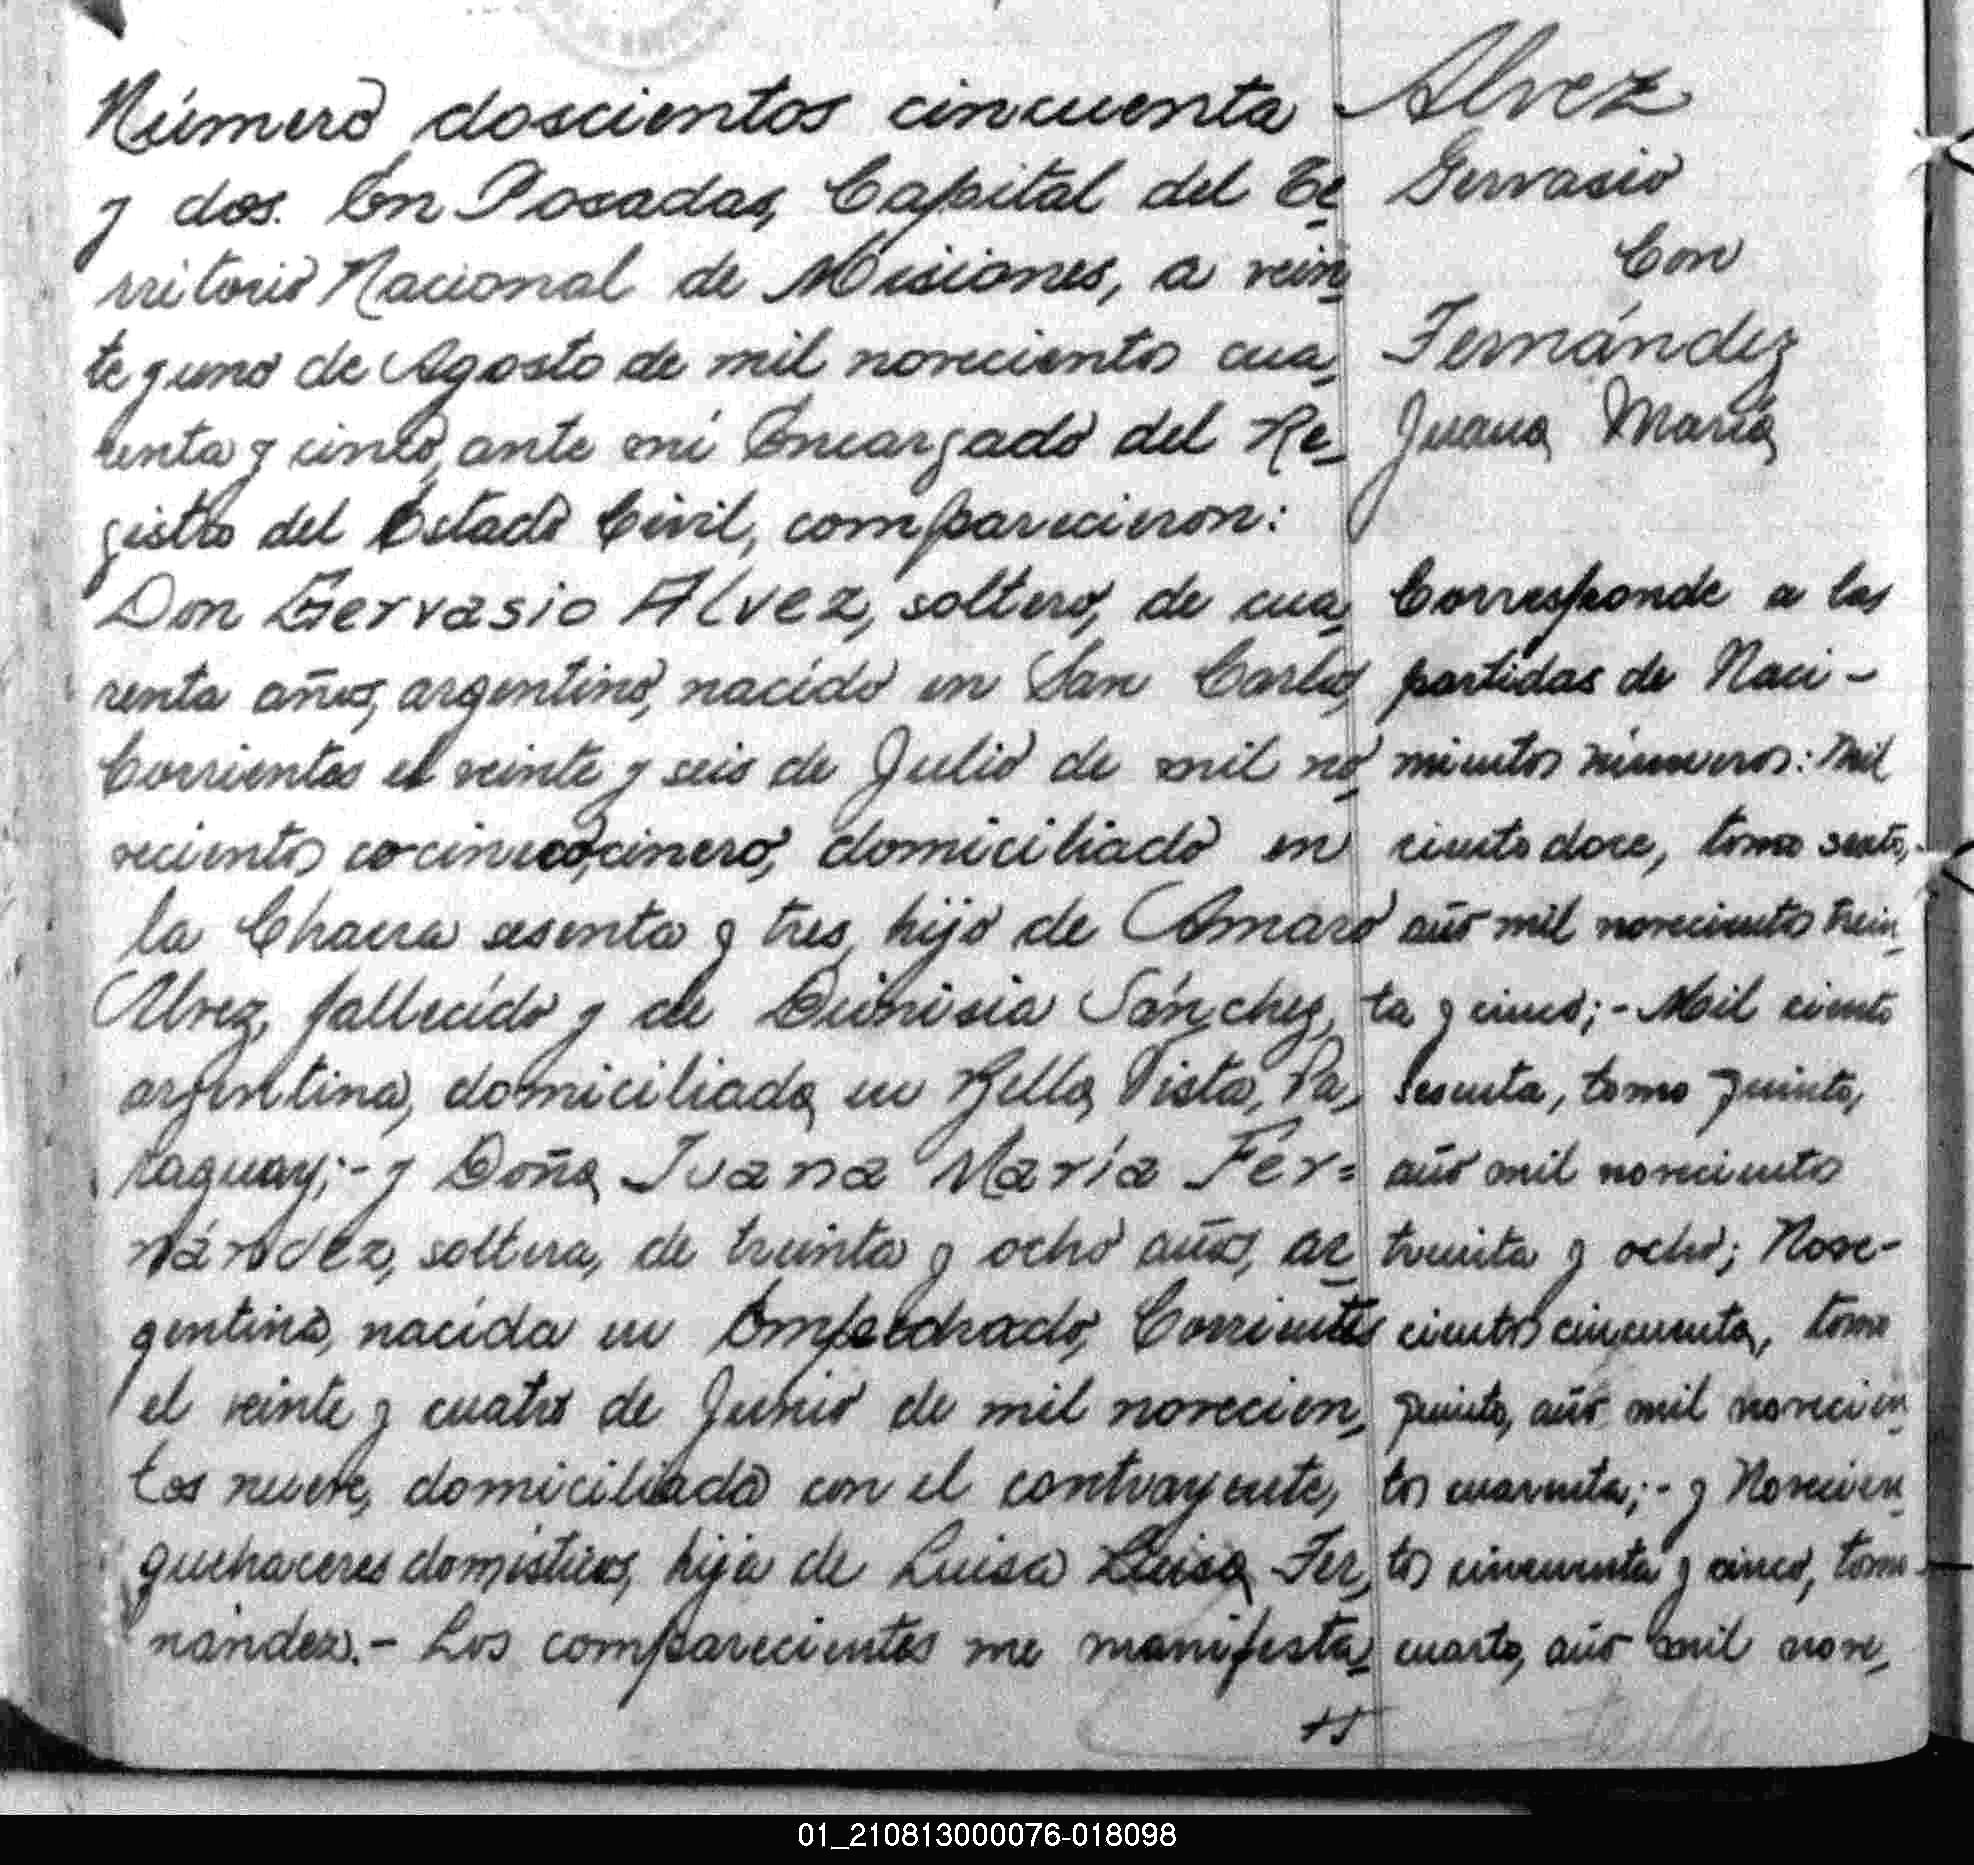 Número doscientos cincuenta
y dos. En Posadas, Capital del Te-
rritorio Nacional de Misiones, a vein-
te y uno de Agosto de mil novecientos cua-
renta y cinco, ante mí Encargado del Re-
gistro del Estado Civil, comparecieron:
Don Gervasio Alvez, soltero, de cua-
renta años, argentino, nacido en San Carlos,
Corrientes el veinte y seis de Julio de mil no-
vecientos cocinero, domiciliado en
la Chacra sesenta y tres, hijo de Amaro
Alvez, fallecido y de Dionisia Sánchez,
argentina, domiciliada en Bella Vista, Pa-
raguay;- y Doña Juana María Fer=
nández, soltera, de treinta y ocho años, ar-
gentina, nacida en Empedrado, Corrientes
el veinte y cuatro de Junio de mil novecien-
tos nueve, domiciliada con el contrayente,
quehaceres domésticos, hija de Luisa Luisa Fer-
nández.- Los comparecientes me manifesta-
Alvez
Gervasio
Con
Fernández
Juana María
Corresponde a las
partidas de Naci-
mientos números: Mil
ciento doce, tomo sexto,
año mil novecientos trein-
ta y cinco;- Mil ciento
sesenta, tomo quinto,
año mil novecientos
treinta y ocho; Nove-
cientos cincuenta, tomo
quinto, año mil novecien-
tos cuarenta;- y Novecien-
tos cincuenta y cinco, tomo
cuarto, año mil nove-
01_210813000076-018098